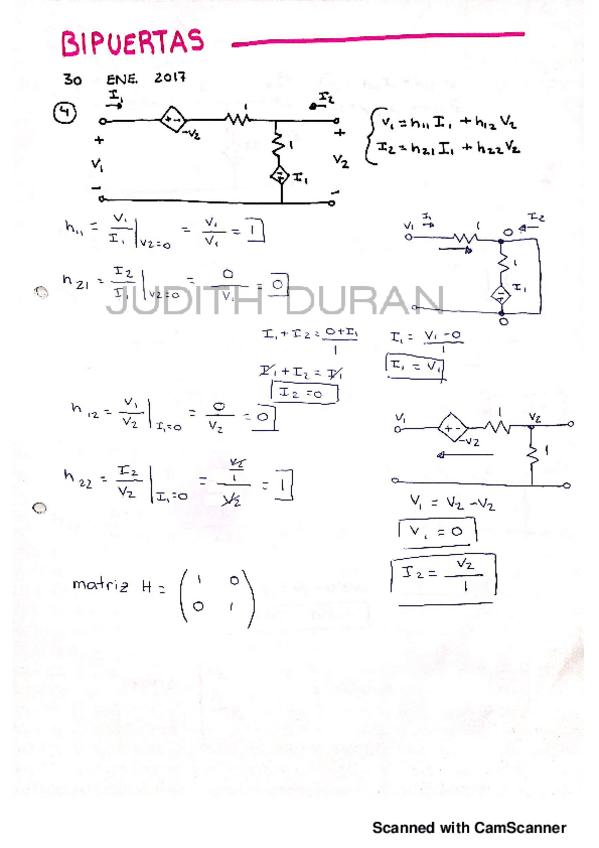 BIPUERTAS
30 ENE. 2017
4
I1 + - -V2 1 I2
+ V1 - 1 I1 + V2 -
V1 = h11 I1 + h12 V2
I2 = h21 I1 + h22 V2
h11 = V1/I1 |V2=0 = V1/V1 = 1
V1 I1 1 0 I2
1 I1
0
h21 = I2/I1 |V2=0 = 0/V1 = 0
JUDITH DURAN
I1 + I2 = 0+I1/1
I1 = V1-0/1
I1 + I2 = I1
I1 = V1
I2 = 0
h12 = V1/V2 |I1=0 = 0/V2 = 0
V1 + - -V2 1 V2
1
h22 = I2/V2 |I1=0 = V2/1/V2 = 1
V1 = V2 - V2
V1 = 0
I2 = V2/1
matriz H = (1 0
0 1)
Scanned with CamScanner